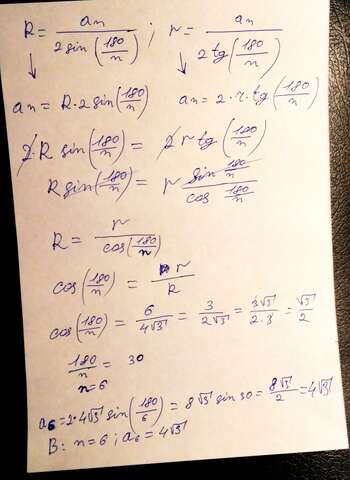 R = aₙ / (2 sin(180/n)) ; r = aₙ / (2 tg(180/n))
↓ ↓
aₙ = R·2 sin(180/n) aₙ = 2·r·tg(180/n)
2·R sin(180/n) = 2 r tg(180/n)
R sin(180/n) = r sin 180/n / cos 180/n
R = r / cos(180/n)
cos(180/n) = r / R
cos(180/n) = 6/(4√3) = 3/(2√3) = 3√3/(2·3) = √3/2
180/n = 30
n = 6
a₆ = 2·4√3 sin(180/6) = 8√3 sin 30 = 8√3/2 = 4√3
В: n = 6 ; a₆ = 4√3